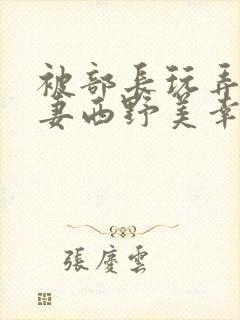 被部長玩弄
妻西野美幸
張慶雲